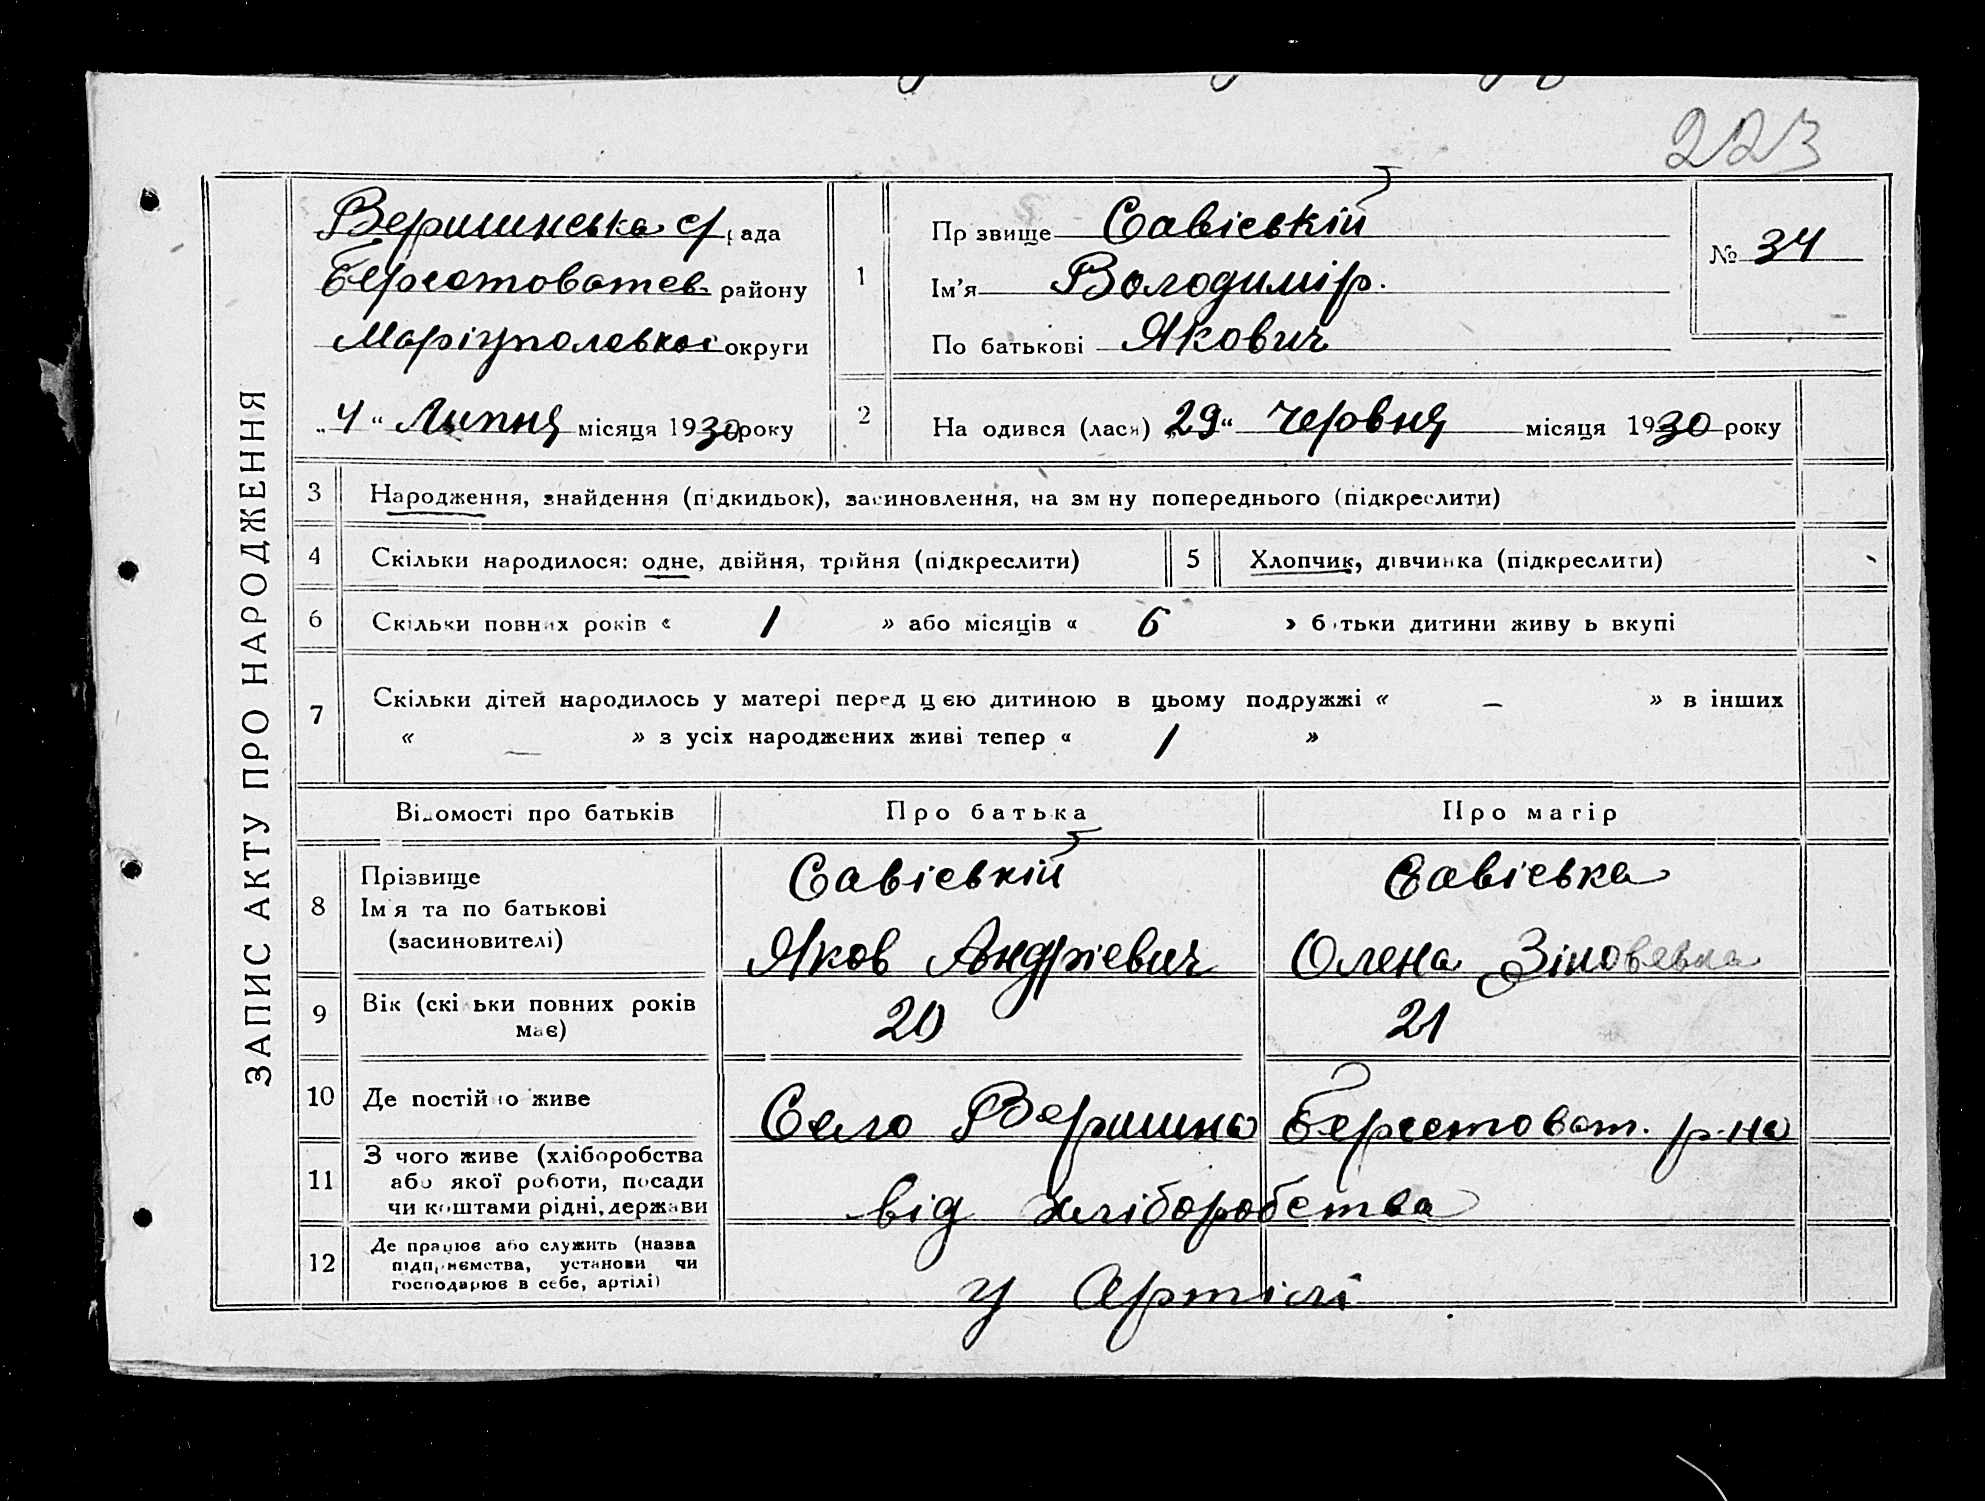 223
ЗАПИС АКТУ ПРО НАРОДЖЕННЯ
Вершинська с/рада
Берестоватск району
Маріупольської округи
„4“ Липня місяця 1930 року
1
Прзвище Савіський
Ім'я Володимір.
По батькові Якович
№ 34
2
На одився (лася) „29“ Червня місяця 1930 року
3 Народження, знайдення (підкидьок), засиновлення, на зм ну попереднього (підкреслити)
4 Скільки народилося: одне, двійня, трійня (підкреслити)
5 Хлопчик, дівчинка (підкреслити)
6 Скільки повних років « 1 » або місяців « 6 » батьки дитини живу ь вкупі
7 Скільки дітей народилось у матері перед цєю дитиною в цьому подружжі « — » в інших
« — » з усіх народжених живі тепер « 1 »
Відомості про батьків Про батька Про матір
8 Прізвище
Ім'я та по батькові
(засиновителі)
Савіський
Яков Андрієвич
Савіська
Олена Зіновевна
9 Вік (скільки повних років
має)
20 21
10 Де постійно живе Село Вершина Берестоват. р-на
11 З чого живе (хліборобства
або якої роботи, посади
чи коштами рідні, держави
від хліборобства
12 Де працює або служить (назва
підприємства, установи чи
господарює в себе, артілі)
у Артілі